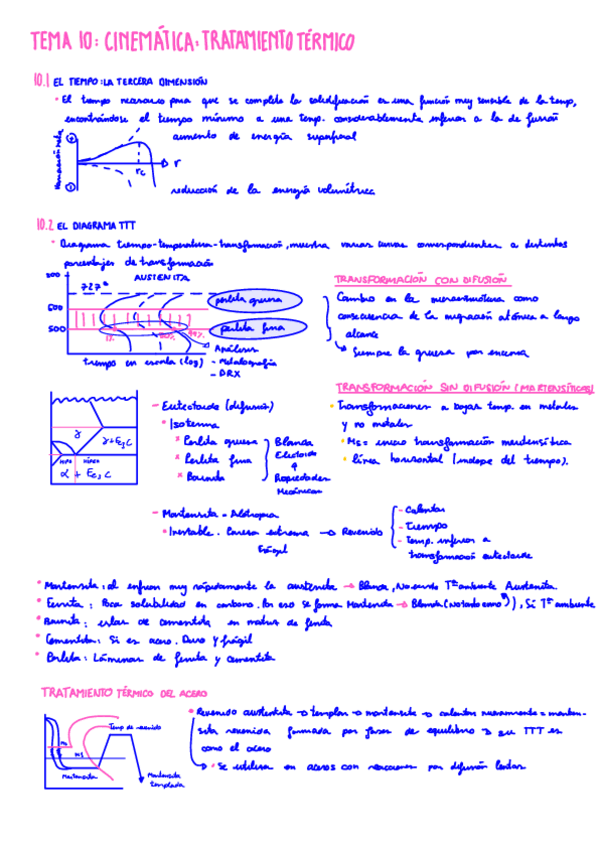 TEMA 10: CINEMÁTICA: TRATAMIENTO TÉRMICO
10.1 EL TIEMPO: LA TERCERA DIMENSIÓN
• El tiempo necesario para que se complete la solidificación es una función muy sensible de la temp,
encontrándose el tiempo mínimo a una temp. considerablemente inferior a la de fusión
aumento de energía superficial
r
rc
reducción de la energía volumétrica
10.2 EL DIAGRAMA TTT
• Diagrama tiempo-temperatura-transformación, muestra varias curvas correspondientes a distintos
porcentajes de transformación
AUSTENITA
727°
600
500
perlita gruesa
perlita fina
1%
50%
99%
tiempo en escala (log)
Análisis
- Metalografía
- DRX
TRANSFORMACIÓN CON DIFUSIÓN
Cambio en la microestructura como
consecuencia de la migración atómica a largo
alcance
Siempre la gruesa por encima
TRANSFORMACIÓN SIN DIFUSIÓN (MARTENSÍTICAS)
• Transformaciones a bajas temp. en metales
y no metales
• Ms = inicio transformación martensítica
• línea horizontal (indepe del tiempo).
γ
γ+Fe3C
HIPO
HIPER
α + Fe3C
- Eutectoide (difusión)
• Isoterma
* Perlita gruesa
* Perlita fina
* Bainita
Blanda
Eutectoide
Propiedades
Mecánicas
- Martensita - Alótropa
• Inestable. Dureza extrema → Revenido
Frágil
- Calentar
- Tiempo
- Temp. inferior a
transformación eutectoide
* Martensita: al enfriar muy rápidamente la austenita → Blanda, No existe Tª ambiente Austenita
* Ferrita: Poca solubilidad en carbono. Por eso se forma Martensita → Blanda (), Si Tª ambiente
* Bainita: islas de cementita en matriz de ferrita
* Cementita: Si es acero. Duro y frágil
* Perlita: Láminas de ferrita y cementita
TRATAMIENTO TÉRMICO DEL ACERO
Temp de revenido
MS
Martensita
Martensita
templada
• Revenido austenita → templar → martensita → calentar nuevamente = marten-
sita revenida formada por fases de equilibrio → su TTT es
como el acero
• Se utiliza en aceros con reacciones por difusión lentas